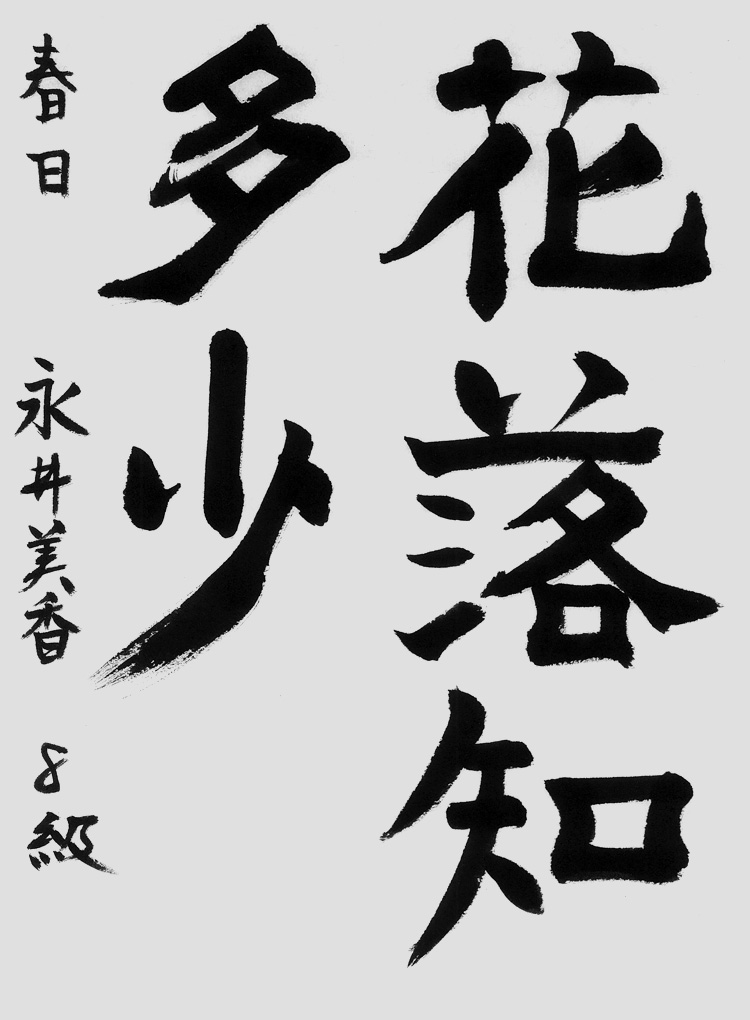 花落知
多少
春日 永井美香 8級